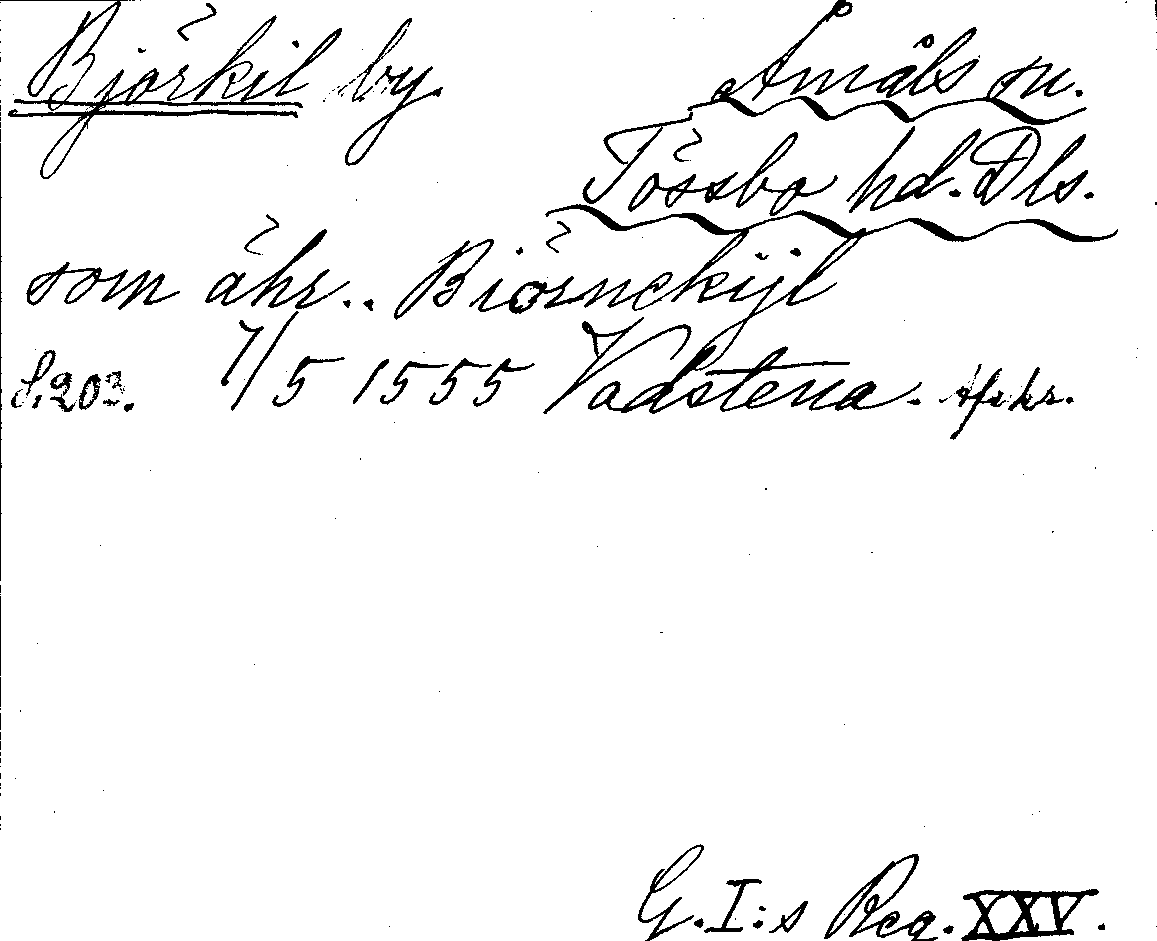 Björkil by. Åmåls sn.
Tössbo hd. Dls.
som ähr.. Biörnekijl
S. 203. 7/5 1555 Vadstena. Afskr.
G.I:s Reg. XXV.